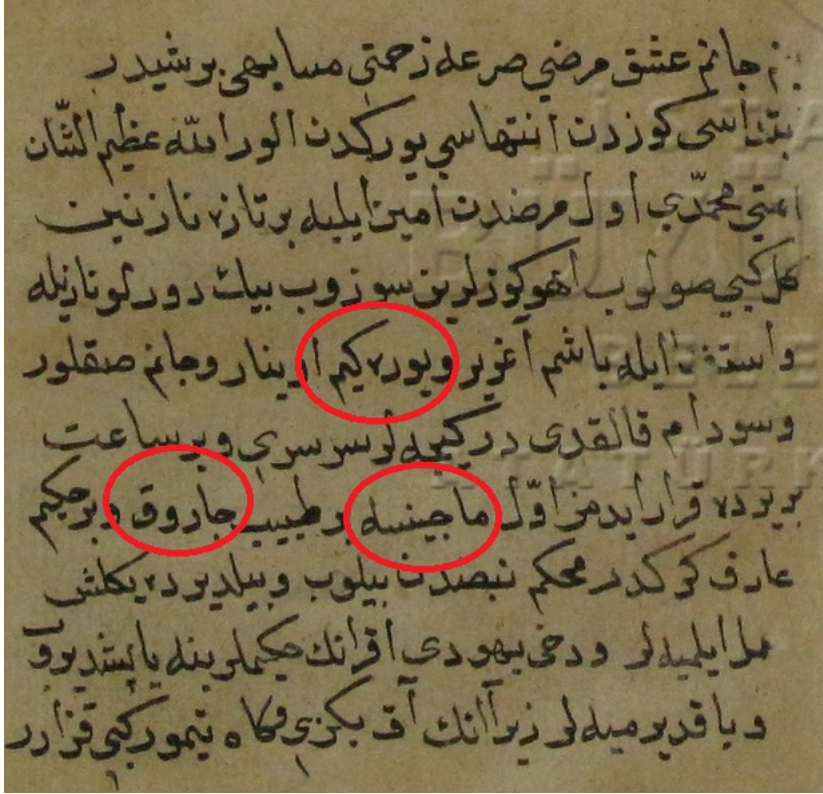 جانم عشق مرضي صرعه زحمتي مشابهي بر شيدر
ابتداسى كوزدن انتهاسي يوركدن الور الله عظيم الشان
امتي محمّدي اول مرضدن امين ايليه بر تازه نازنين
كل كبي صولوب اهو كوزلرين سوزوب بيك دورلو نازيله
ايله باشم اغرير ويوره كيم اوينار وجانم صقلور
وسودام قالقدى در كيجه لر سرسري وبر ساعت
بر يرده قرار ايدمز اوّل ماجينسه بر طبيب جاروق وبر حكيم
عارف كركدر محكم نبضدن بيلوب وبيلديرده يكلش
ايلميه لر ودخى يهودي اقرانك حكيملرينه ياپشديروب
وباقديرميه لر زيرا انك اق بكزي وكاه تيمور كبي قزارر